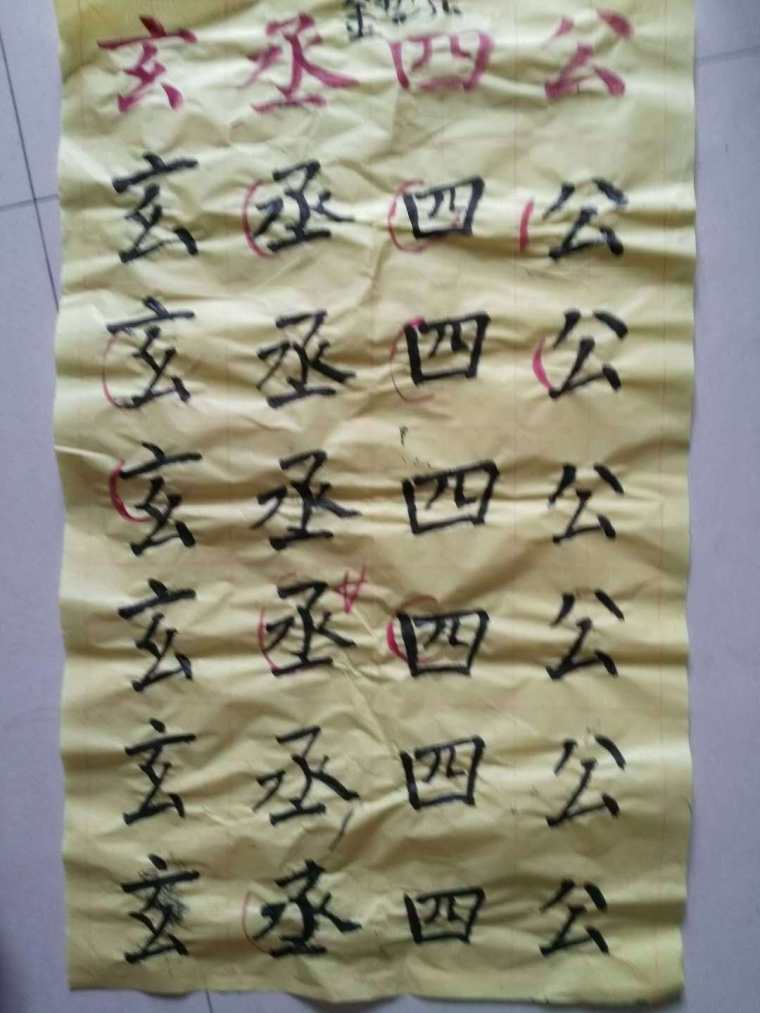 玄丞四公
玄丞四公
玄丞四公
玄丞四公
玄丞四公
玄丞四公
玄丞四公